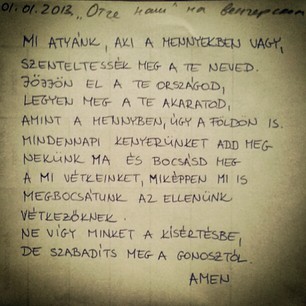 01.01.2013 „Отче наш" на венгерском
MI ATYÁNK, AKI A MENNYEKBEN VAGY,
SZENTELTESSÉK MEG A TE NEVED.
JÖJJÖN EL A TE ORSZÁGOD,
LEGYEN MEG A TE AKARATOD,
AMINT A MENNYBEN, ÚGY A FÖLDÖN IS.
MINDENNAPI KENYERÜNKET ADD MEG
NEKÜNK MA ÉS BOCSÁSD MEG
A MI VÉTKEINKET, MIKÉPPEN MI IS
MEGBOCSÁTUNK AZ ELLENÜNK
VÉTKEZŐKNEK.
NE VÍGY MINKET A KÍSÉRTÉSBE,
DE SZABADÍTS MEG A GONOSZTÓL.
AMEN